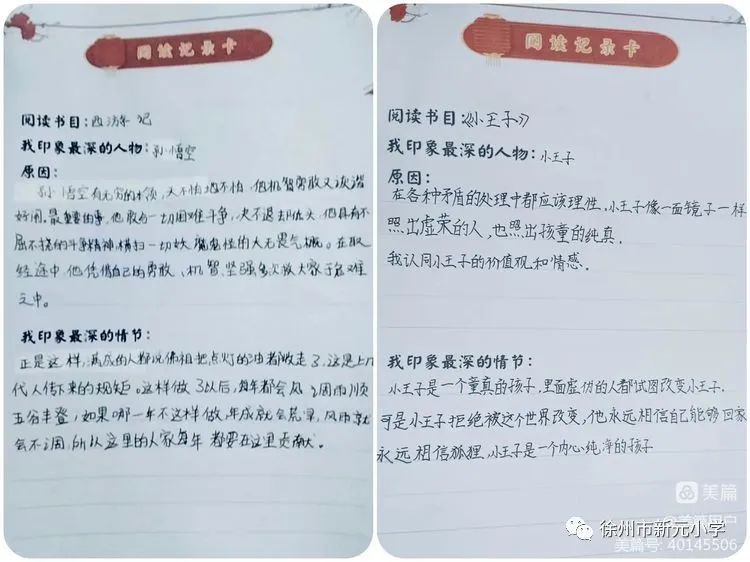 阅读记录卡
阅读书目:西游记
我印象最深的人物:孙悟空
原因:
孙悟空有无穷的本领,天不怕地不怕,他机智勇敢又诙谐
好闹。最重要的事,他敢与一切困难斗争,决不退却低头,他具有不
屈不挠的斗争精神,横扫一切妖魔鬼怪的大无畏气概。在取
经途中,他凭借自己的勇敢、机智、坚强多次救大家于危难
之中。
我印象最深的情节:
正是这样,满成的人都说佛祖把点灯的油者收走了,这是上几
代人传下来的规矩。这样做了以后,每年都会风调雨顺
五谷丰登,如果哪一年不这样做,年成就会荒旱,风雨就
会不调,所以这里的人家每年都要在这里贡献。
阅读记录卡
阅读书目:《小王子》
我印象最深的人物:小王子
原因:
在各种矛盾的处理中都应该理性,小王子像一面镜子一样
照出虚荣的人,也照出孩童的纯真.
我认同小王子的价值观和情感.
我印象最深的情节:
小王子是一个童真的孩子,里面虚伪的人都试图改变小王子.
可是小王子拒绝被这个世界改变,他永远相信自己能够回家
永远相信狐狸,小王子是一个内心纯净的孩子
美篇
徐州市新元小学
美篇号: 40145506